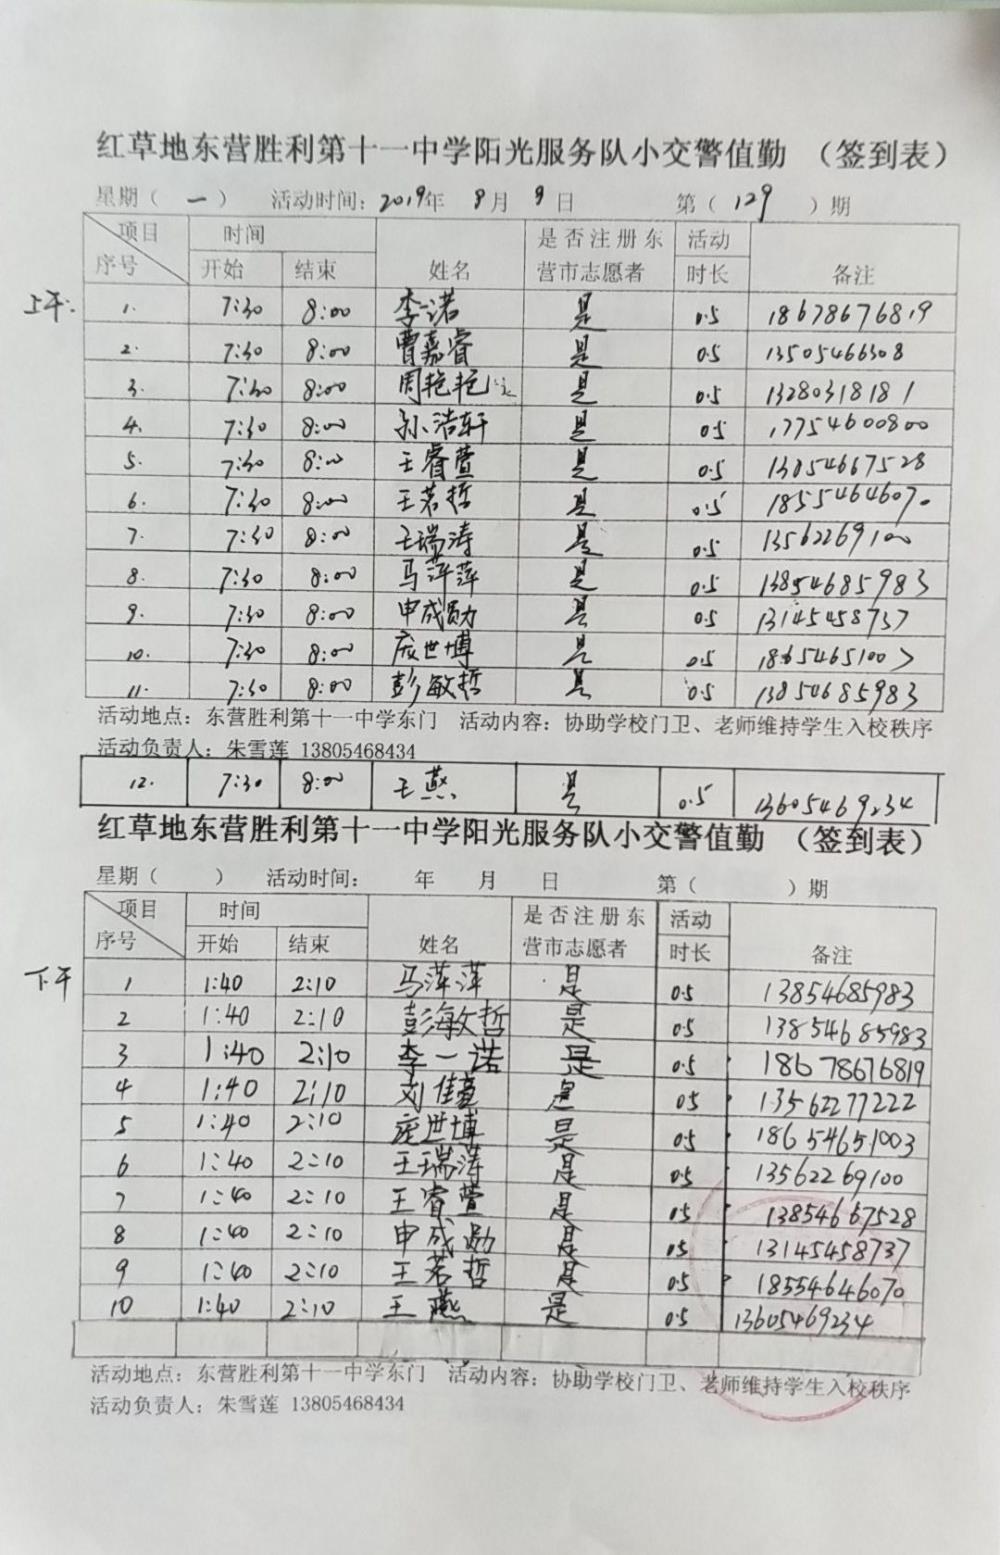 红草地东营胜利第十一中学阳光服务队小交警值勤 （签到表）
星期（ 一 ） 活动时间：2019年 8月 9日 第（ 129 ）期
项目 时间 是否注册东 活动
序号 开始 结束 姓名 营市志愿者 时长 备注
上午.
1. 7:30 8:00 李一诺 是 0.5 18678676819
2. 7:30 8:00 曹嘉睿 是 0.5 13505466308
3. 7:30 8:00 周艳艳 是 0.5 13280318181
4. 7:30 8:00 孙浩轩 是 0.5 17754600800
5. 7:30 8:00 王睿萱 是 0.5 13854667528
6. 7:30 8:00 王若哲 是 0.5 18554646070
7. 7:30 8:00 王瑞涛 是 0.5 13562269100
8. 7:30 8:00 马萍萍 是 0.5 13854685983
9. 7:30 8:00 申成勋 是 0.5 13145458737
10. 7:30 8:00 庞世博 是 0.5 18654651003
11. 7:30 8:00 彭敏哲 是 0.5 13854685983
活动地点：东营胜利第十一中学东门 活动内容：协助学校门卫、老师维持学生入校秩序
活动负责人：朱雪莲 13805468434
12. 7:30 8:00 王燕 是 0.5 13605469234
红草地东营胜利第十一中学阳光服务队小交警值勤 （签到表）
星期（ ） 活动时间： 年 月 日 第（ ）期
项目 时间 是否注册东 活动
序号 开始 结束 姓名 营市志愿者 时长 备注
下午
1 1:40 2:10 马萍萍 是 0.5 13854685983
2 1:40 2:10 彭敏哲 是 0.5 13854685983
3 1:40 2:10 李一诺 是 0.5 18678676819
4 1:40 2:10 刘佳萱 是 0.5 13562277222
5 1:40 2:10 庞世博 是 0.5 18654651003
6 1:40 2:10 王瑞涛 是 0.5 13562269100
7 1:40 2:10 王睿萱 是 0.5 13854667528
8 1:40 2:10 申成勋 是 0.5 13145458737
9 1:40 2:10 王若哲 是 0.5 18554646070
10 1:40 2:10 王燕 是 0.5 13605469234
活动地点：东营胜利第十一中学东门 活动内容：协助学校门卫、老师维持学生入校秩序
活动负责人：朱雪莲 13805468434